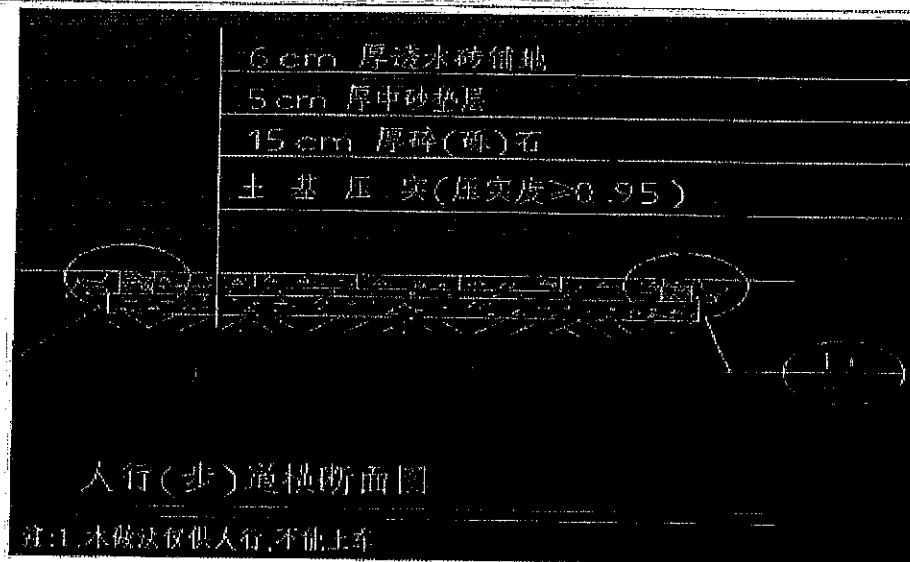 6 cm 厚透水砖铺地
5 cm 厚中砂垫层
15 cm 厚碎(砾)石
土 基 压 实(压实度≥0.95)
人行(步)道横断面图
注:1.本做法仅供人行,不能上车